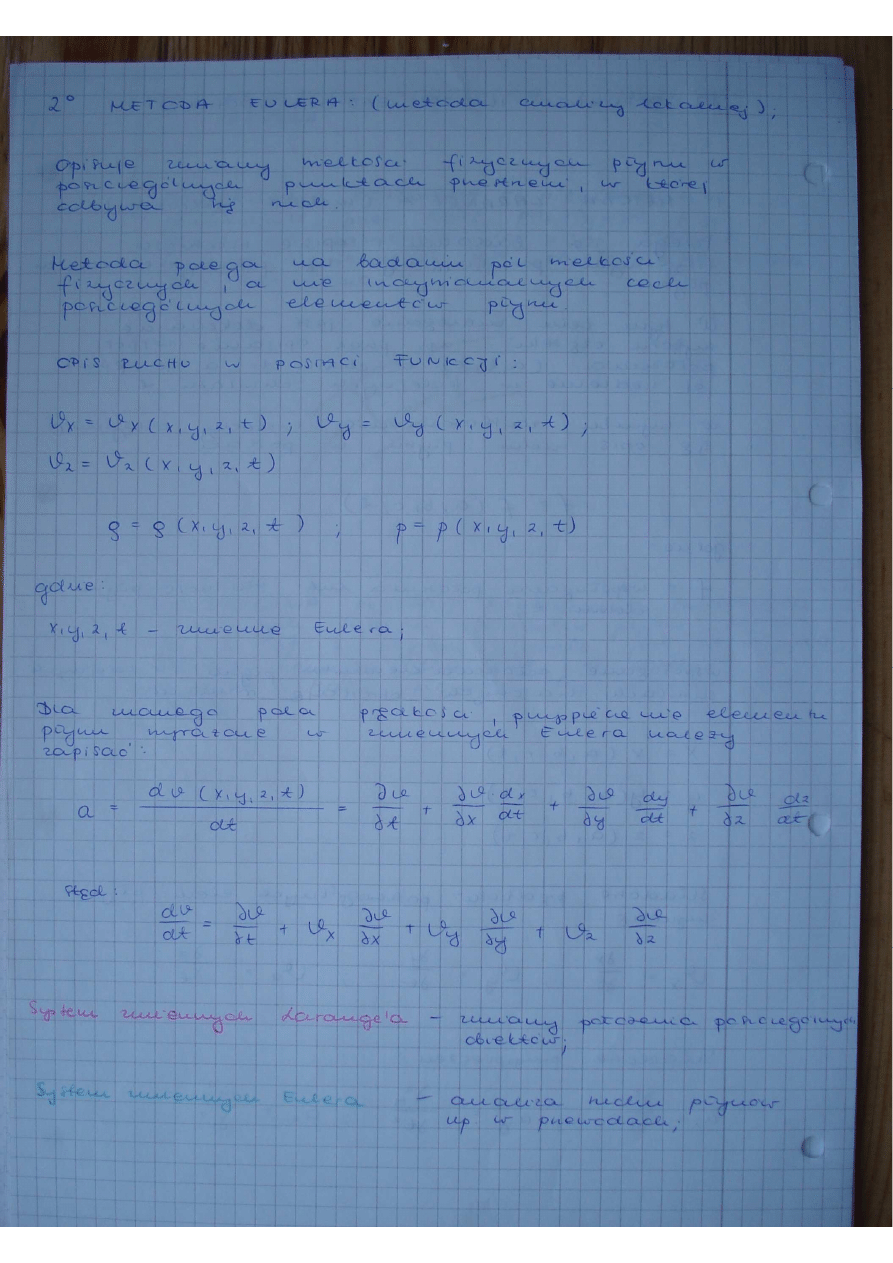 2° METODA EULERA: (metoda analizy lokalnej);
Opisuje zmiany wielkości fizycznych płynu w
poszczególnych punktach przestrzeni, w której
odbywa się ruch.
Metoda polega na badaniu pól wielkości
fizycznych, a nie indywidualnych cech
poszczególnych elementów płynu.
OPIS RUCHU W POSTACI FUNKCJI:
υx = υx (x, y, z, t) ; υy = υy (x, y, z, t) ;
υz = υz (x, y, z, t)
ρ = ρ (x, y, z, t) ; p = p (x, y, z, t)
gdzie:
x, y, z, t – zmienne Eulera;
Dla znanego pola prędkości, przyspieszenie elementu
płynu wyrażone w zmiennych Eulera należy
zapisać:
a = dυ (x, y, z, t) / dt = ∂υ/∂t + ∂υ/∂x dx/dt + ∂υ/∂y dy/dt + ∂υ/∂z dz/dt
stąd:
dυ/dt = ∂υ/∂t + υx ∂υ/∂x + υy ∂υ/∂y + υz ∂υ/∂z
System zmiennych Larange'a – zmiany położenia poszczególnych
obiektów;
System zmiennych Eulera – analiza ruchu płynów
np w przewodach;